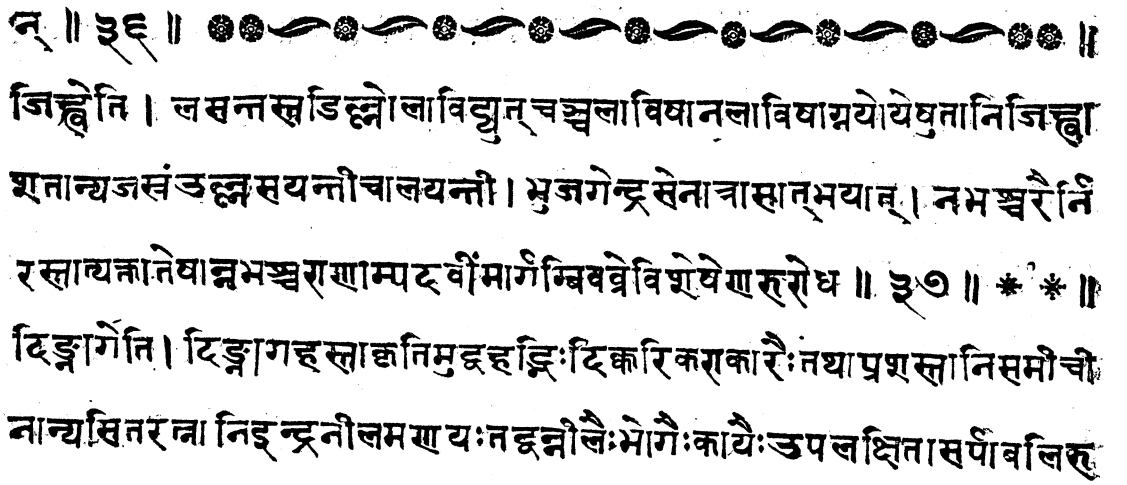 न् ॥ ३६ ॥ ॥
जिह्वेति । लसन्तस्तडिल्लोलाविद्युत् चञ्चलाविषानलाविषाग्नयोयेषुतानिजिह्वा
शतान्यजस्रंउल्लसयन्तीचालयन्ती । भुजगेन्द्रसेनात्रासात्भयात् । नभश्चरैर्नि
रस्तात्यक्तातेषान्नभश्चराणाम्पदवींमार्गम्बिवव्रेविशेषेणरुरोध ॥ ३७ ॥ * * ॥
दिङ्नागेति । दिङ्नागहस्ताकृतिमुद्वहद्भिः दिक्करिकराकारैः तथाप्रशस्तानिसमीची
नान्यसितरत्नानिइन्द्रनीलमणयः तद्वन्नीलैः भोगैः कायैः उपलक्षितासर्पाबलिरु